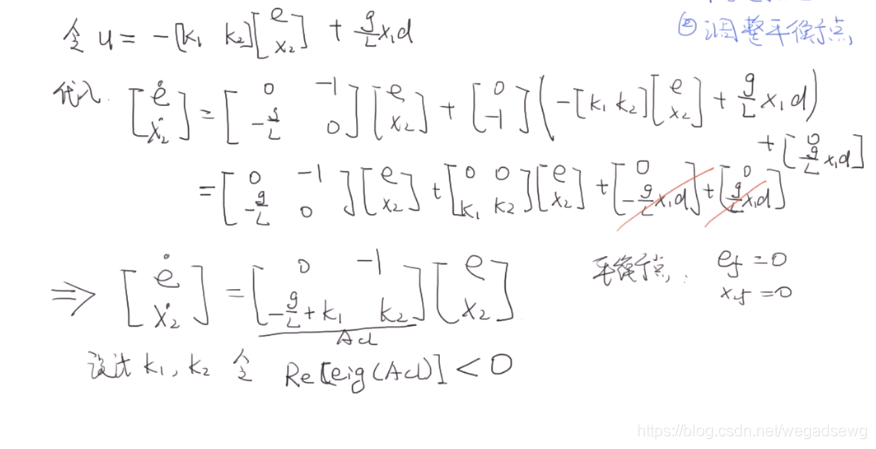 令 u = -[k₁ k₂][e x₂] + g/L x₁d
② 调整平衡点
代入 [ė ẋ₂] = [0 -1; -g/L 0][e x₂] + [0 -1](-[k₁ k₂][e x₂] + g/L x₁d) + [0 g/L x₁d]
= [0 -1; -g/L 0][e x₂] + [0 0; k₁ k₂][e x₂] + [0 -g/L x₁d] + [0 g/L x₁d]
⇒ [ė ẋ₂] = [0 -1; -g/L+k₁ k₂][e x₂]
Acl
平衡点: ef = 0
x₂f = 0
设计 k₁, k₂ 令 Re[eig(Acl)] < 0
https://blog.csdn.net/wegadsewg